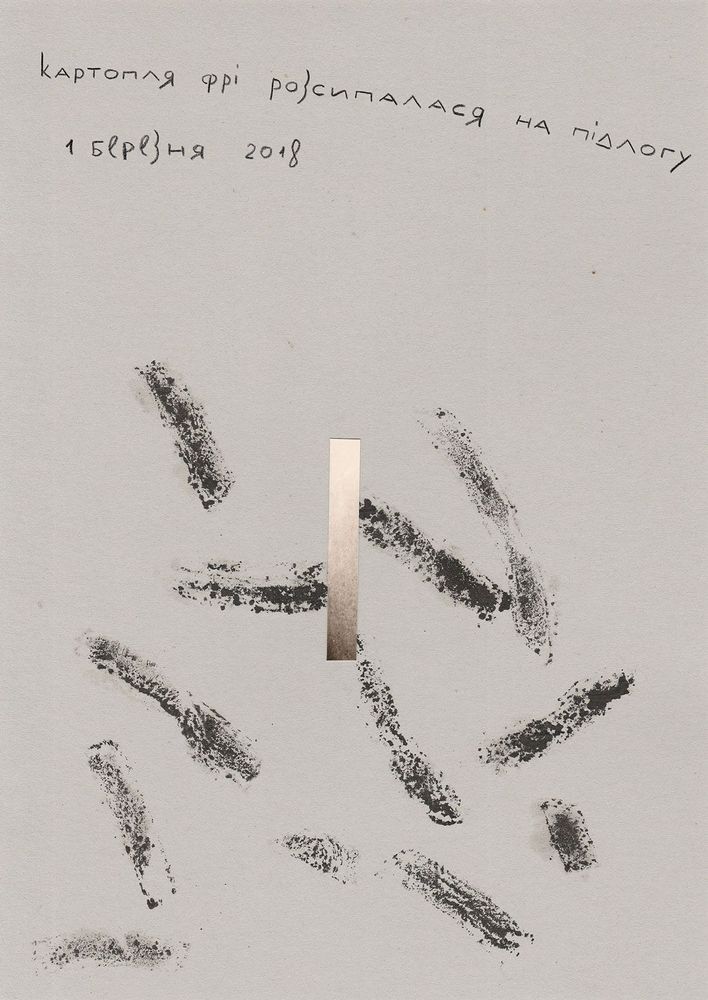 картопля фрі розсипалася на підлогу
1 березня 2018